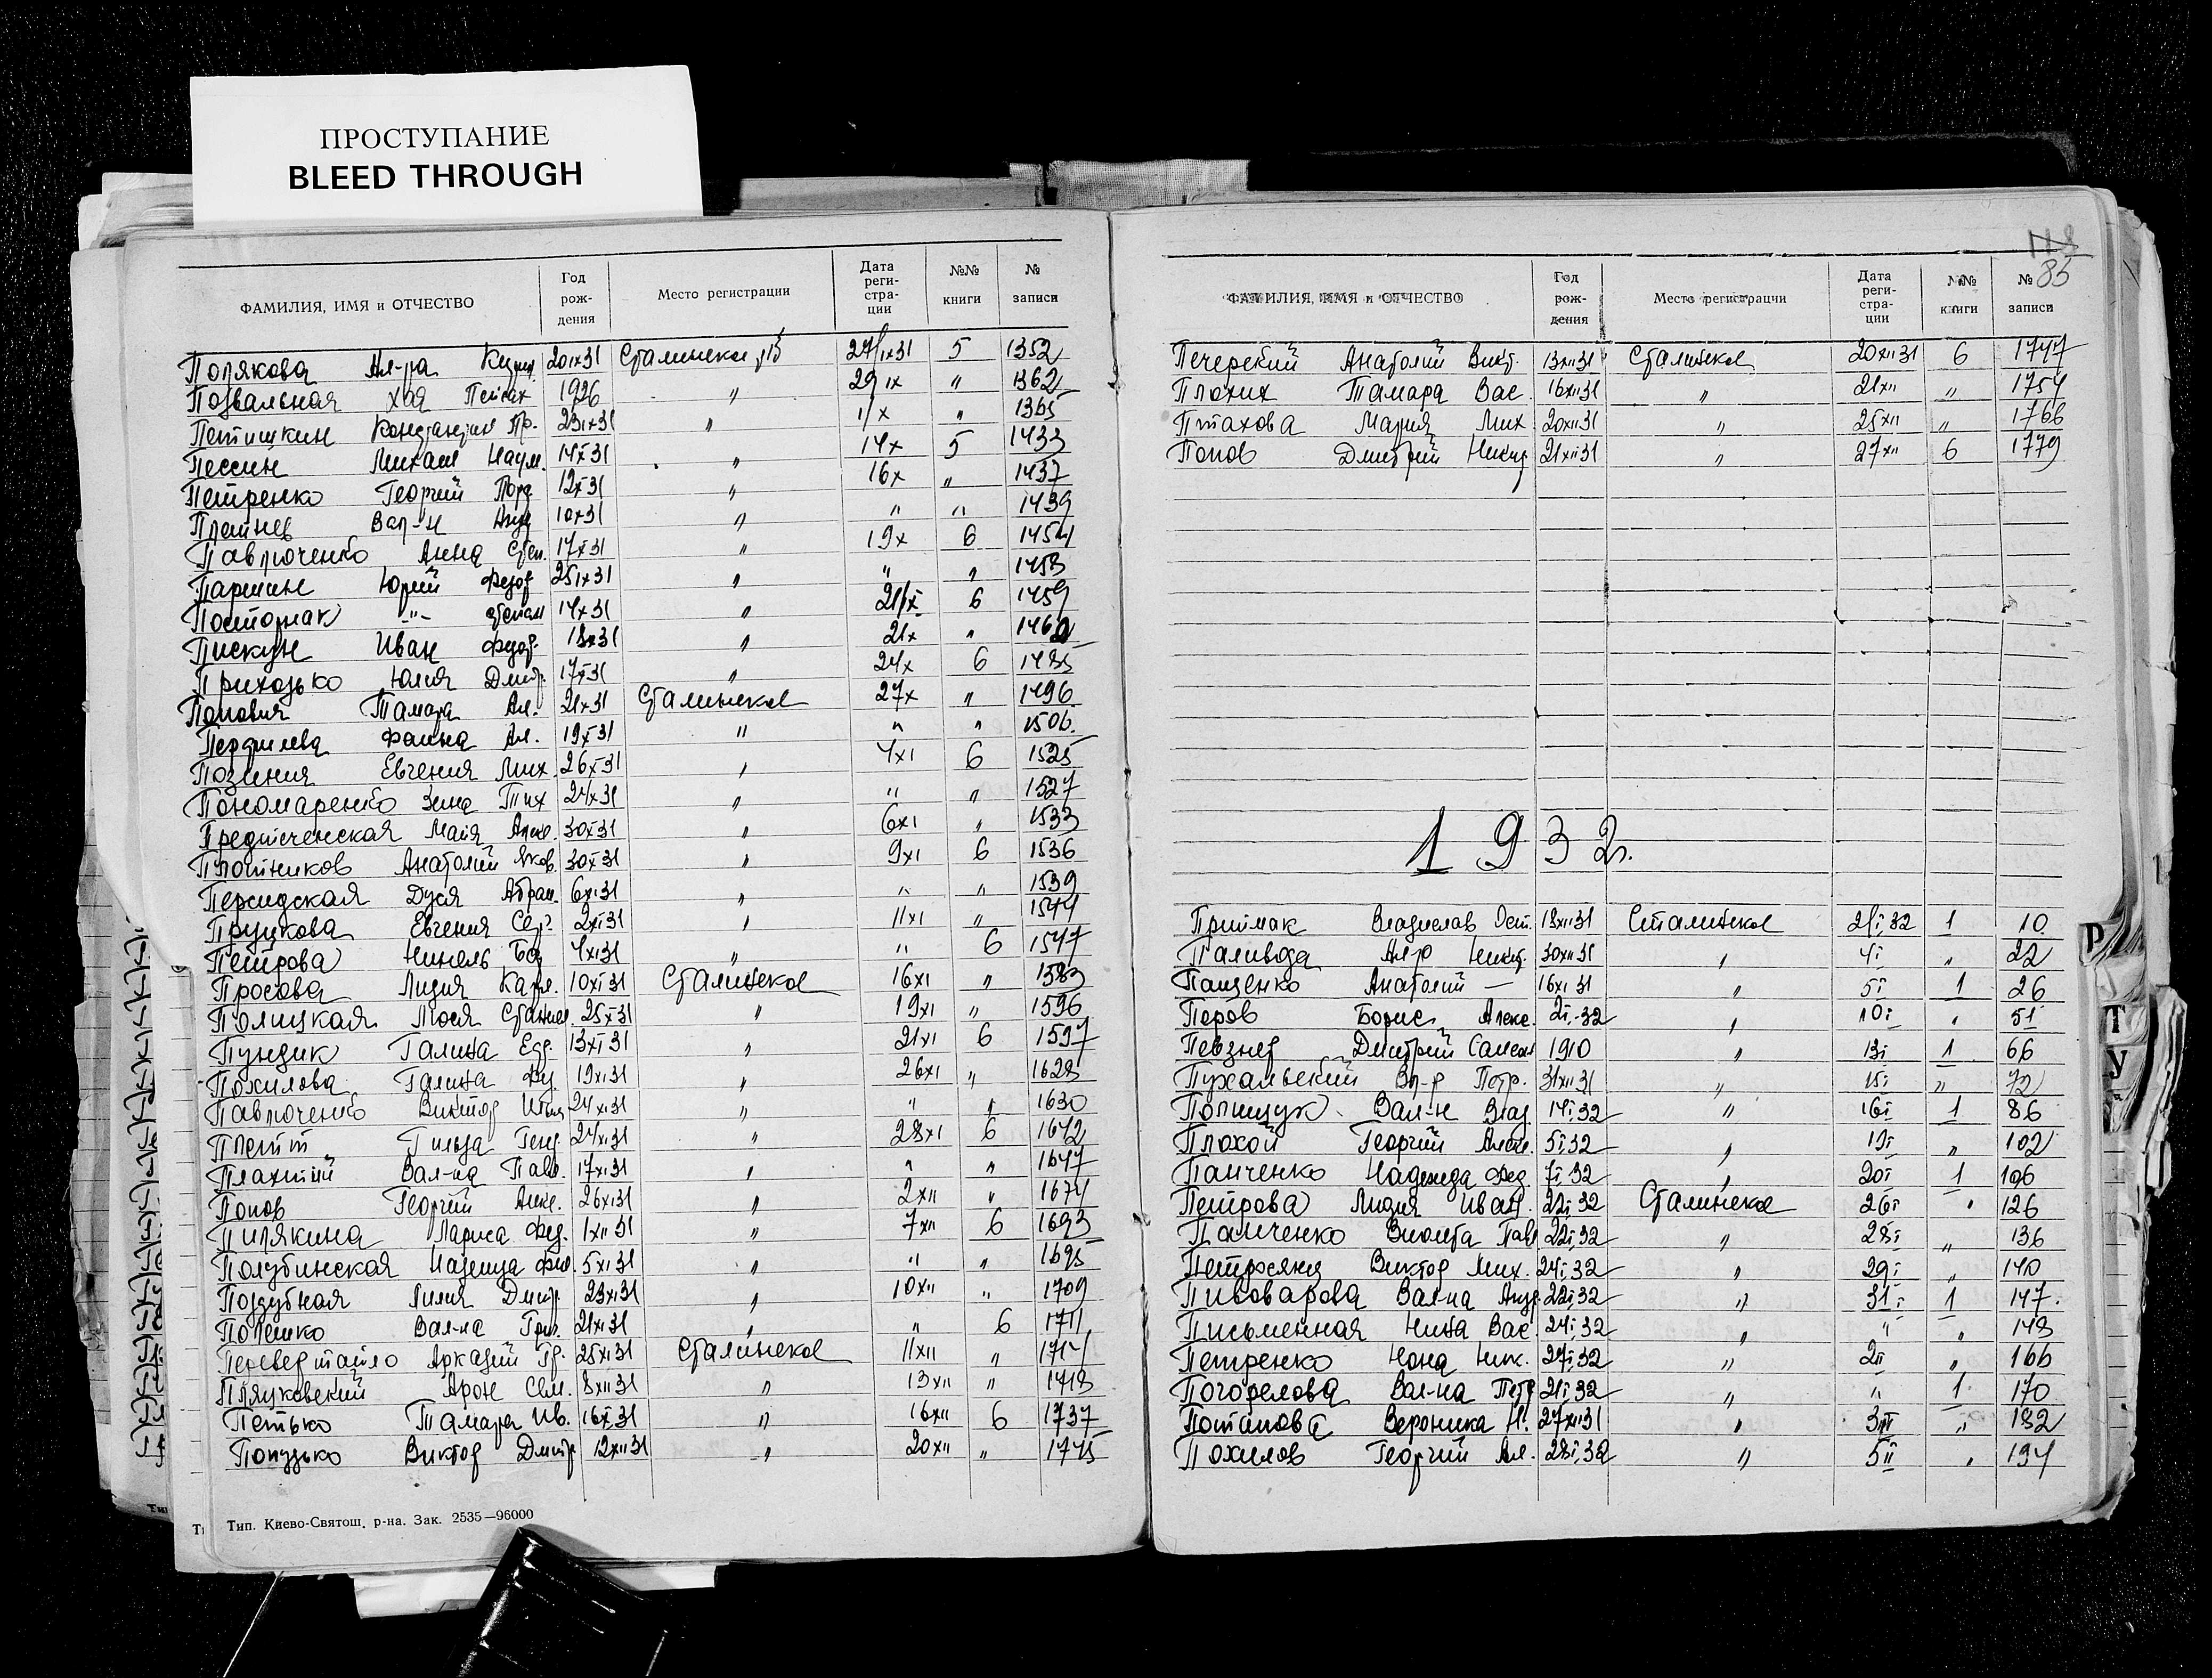 ПРОСТУПАНИЕ
BLEED THROUGH
ФАМИЛИЯ, ИМЯ и ОТЧЕСТВО Год рождения Место регистрации Дата регистрации №№ книги № записи
Полякова Ал-ра 20IX31 Сталинское 5 1352
Повальная Хая Пейсах 1926 " 29IX " 1362
Петишкин 23IX31 " 1/X " 1365
Пессин Михаил Наум. 14X31 " 14X 5 1433
Петренко Георгий 12X31 " 16X " 1437
Плетнев Вал-н Анд 10X31 " " " 1439
Павлюченко Анна Степ. 17X31 " 19X 6 1451
Паршин Юрий Федор 25IX31 " " " 1453
Постомак -"- Степан 14X31 " 21/X 6 1459
Пискун Иван Федор. 18X31 " 21X "
Приходько Юлия Дмитр. 17X31 " 24X 6 1485
Попович Тамара Ал. 21X31 Сталинское 27X " 1496
Перфилева Фаина Ал. 19X31 " " " 1506
Евгения Мих. 26X31 " 4XI 6 1525
Пономаренко Зина Тих 24X31 " " " 1527
Предтеченская Майя Алек. 30X31 " 6XI " 1533
Плотников Анатолий Яков. 30X31 " 9XI 6 1536
Персидская Дуся Абрам. 6XI31 " " " 1539
Пруцкова Евгения Сер. 2XI31 " 11XI " 1544
Петрова Нинель 4XI31 " " 6 1547
Просова Лидия Карл. 10XI31 Сталинское 16XI " 1583
Полицкая Люся Станисл. 25X31 " 19XI " 1596
Пундик Галина Ед. 13XI31 " 21XI 6 1597
Похилова Галина 19XI31 " 26XI " 1628
Павлюченко Виктор 24XI31 " " " 1630
Плетт Гильда Генр. 24XI31 " 28XI 6 1642
Плахтий Вал-на Павл. 17XI31 " " " 1647
Попов Георгий Алек. 26XI31 " 2XII " 1674
Пилякина Лариса Фед. 1XII31 " 7XII 6 1693
Полубинская Надежда Фил. 5XI31 " " " 1695
Поддубная Лилия Дмитр 23XI31 " 10XII " 1709
Полешко Вал-на Григ. 21XI31 " " 6 1711
Перевертайло Аркадий Гр. 25XI31 Сталинское 11XII " 1714
Пляцковский Арон Свл. 8XII31 " 13XII " 1718
Петько Тамара Ив. 16X31 " 16XII 6 1737
Попузько Виктор Дмитр 12XII31 " 20XII " 1745
Тип. Киево-Святош. р-на. Зак. 2535—96000
118
85
ФАМИЛИЯ, ИМЯ и ОТЧЕСТВО Год рождения Место регистрации Дата регистрации №№ книги № записи
Печерский Анатолий Викт. 13XII31 Сталинское 20XII31 6 1747
Плохих Тамара Вас. 16XII31 " 21XII " 1754
Птахова Мария Мих 20XII31 " 25XII " 1766
Попов Дмитрий Никид 21XII31 " 27XII 6 1779
1932г.
Приймак Владислав 18XII31 Сталинское 2/I,32 1 10
Паливода Ал-р Никит. 30XII31 " 4I " 22
Пащенко Анатолий — 16XI31 " 5I 1 26
Перов Борис Алекс. 2I-32 " 10I " 51
Певзнер Дмитрий Самсон 1910 " 13I 1 66
Пухальский Вл-р Петр. 31XII31 " 15I " 72
Полищук Вал-н Влад. 14I,32 " 16I 1 86
Плохой Георгий Алек. 5I,32 " 19I " 102
Панченко Надежда Фед. 7I,32 " 20I 1 106
Петрова Лидия Иван. 22I,32 Сталинское 26I " 126
Панченко Виолета Павл 22I,32 " 28I " 136
Виктор Мих. 24I,32 " 29I " 140
Пивоварова Вал-на Андр. 22I,32 " 31I 1 147
Письменная Нина Вас. 24I,32 " " " 148
Петренко Нона Ник. 27I,32 " 2II " 166
Погорелова Вал-на Петр 21I,32 " " 1 170
Потапова Вероника Н. 27XII31 " 3II " 182
Похилов Георгий Ал. 28I,32 " 5II " 194